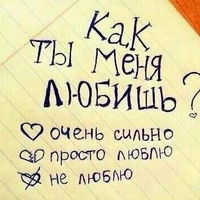 Как
ты меня
любишь?
очень сильно
просто люблю
не люблю